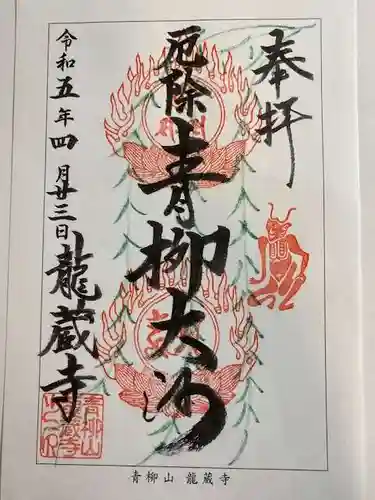 奉拝
厄除
青柳大師
令和五年四月廿三日
龍蔵寺
青柳山
龍蔵寺
青柳山 龍蔵寺